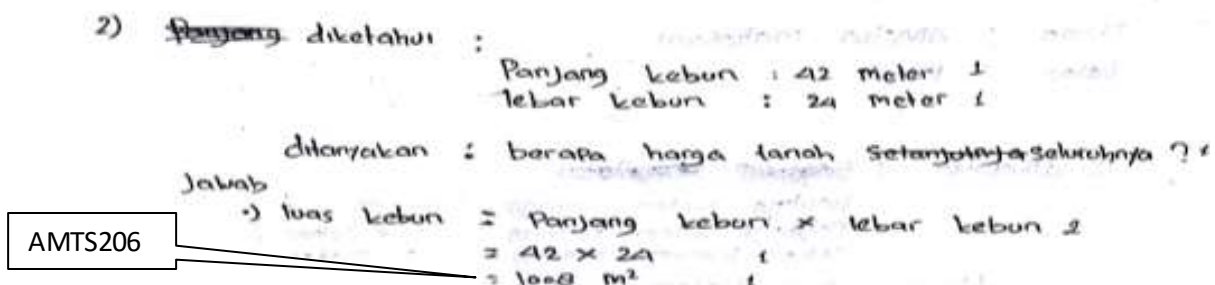 2) Panjang diketahui :
Panjang kebun : 42 meter 1
lebar kebun : 24 meter 1
ditanyakan : berapa harga tanah selanjutnya seluruhnya ? 1
Jawab
•) luas kebun = Panjang kebun x lebar kebun 2
= 42 x 24 1
AMTS206
= 1008 m² 1